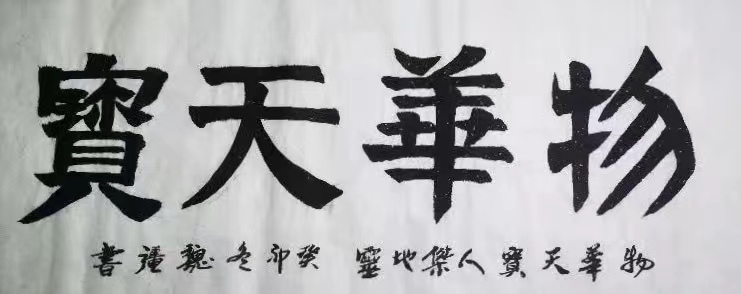 物華天寳
物華天寳人傑地靈 癸卯冬魏疆書